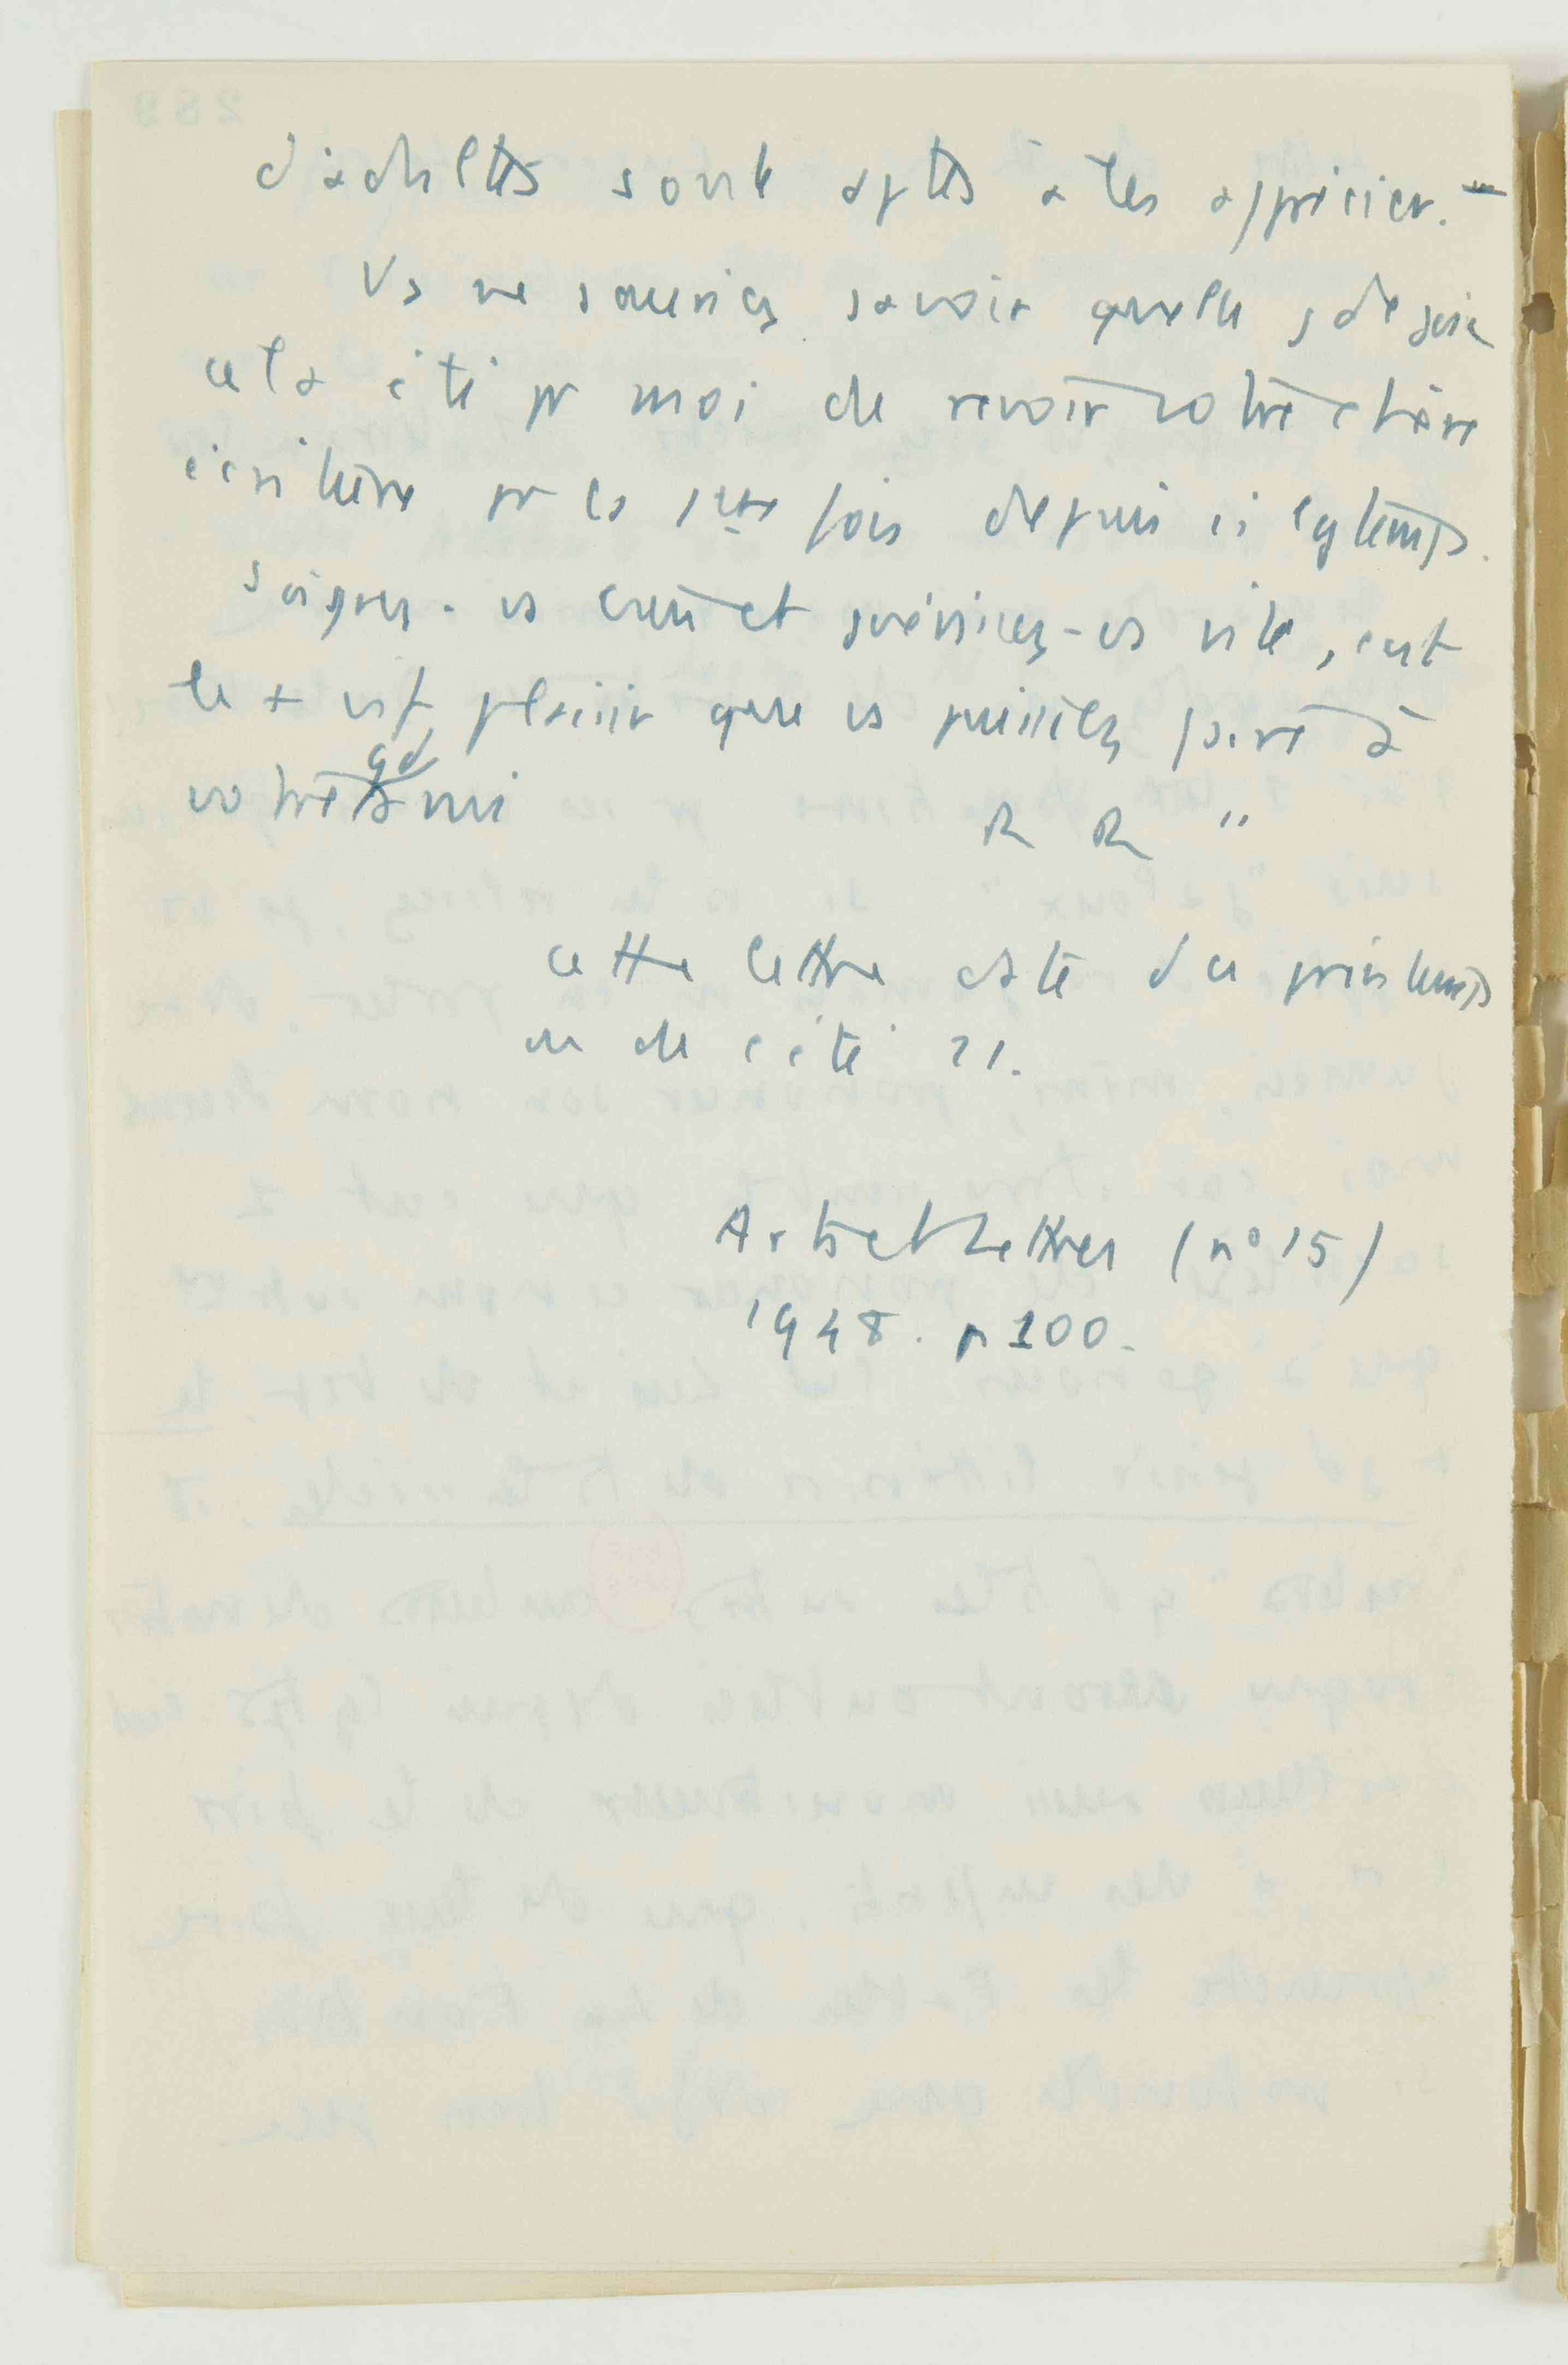 d'adultes sont aptes à les apprécier. –
Vs ne sauriez savoir quelle gde joie
cela a été pr moi de revoir votre chère
écriture pr la 1ère fois depuis si lgtemps.
Soignez-vs bien et guérissez-vs vite, c'est
le + vif plaisir que vs puissiez faire à
votre gd ami
R R "
cette lettre date du printemps
ou de l'été 21.
Arts et Lettres (n° 15)
1948. p 100.